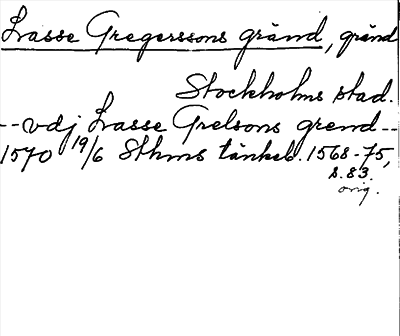 Lasse Gregerssons gränd, gränd
Stockholms stad.
--vdj Lasse Grelsons grend--
1570 19/6 Sthms tänkeb. 1568-75,
s. 83.
orig.